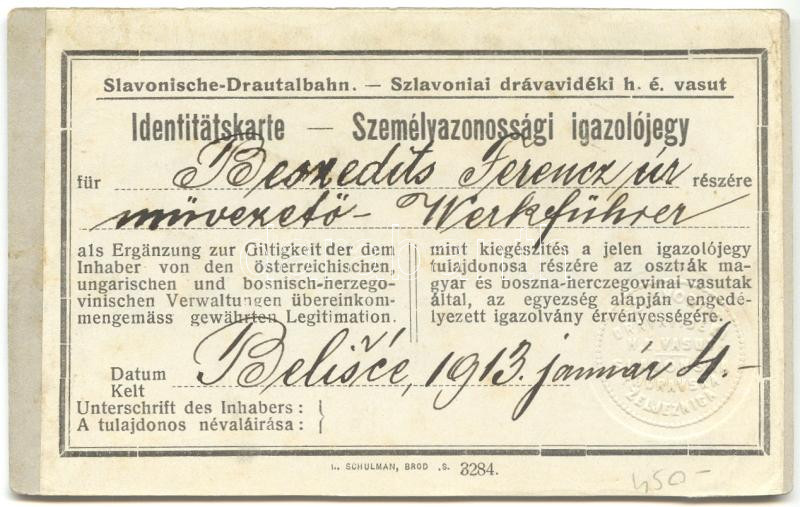 Slavonische-Drautalbahn. — Szlavoniai drávavidéki h. é. vasut
Identitätskarte — Személyazonossági igazolójegy
für Beszedits Ferencz úr részére
művezető - Werkführer
als Ergänzung zur Giltigkeit der dem
Inhaber von den österreichischen,
ungarischen und bosnisch-herzego-
vinischen Verwaltungen übereinkom-
mengemäss gewährten Legitimation.
mint kiegészítés a jelen igazolójegy
tulajdonosa részére az osztrák ma-
gyar és boszna-herczegovinai vasutak
által, az egyezség alapján engedé-
lyezett igazolvány érvényességére.
Datum
Kelt
Belišće, 1913. január 4.-
Unterschrift des Inhabers :
A tulajdonos névaláirása :
SCHULMAN, BROD .S. 3284.
450-